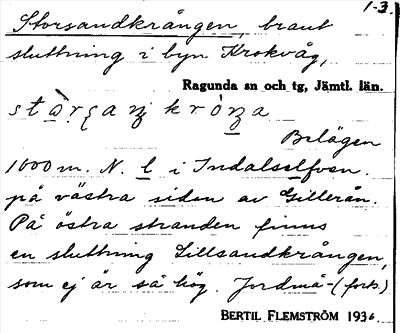 1-3.
Storsandkrången, brant
sluttning i byn Krokvåg,
Ragunda sn och tg, Jämtl. län.
Belägen
1000 m. N. l i Indalselfven.
på västra sidan av Gillerån.
På östra stranden finns
en sluttning Lillsandkrången,
som ej är så hög. Jordmå-(forts.)
BERTIL FLEMSTRÖM 1936.